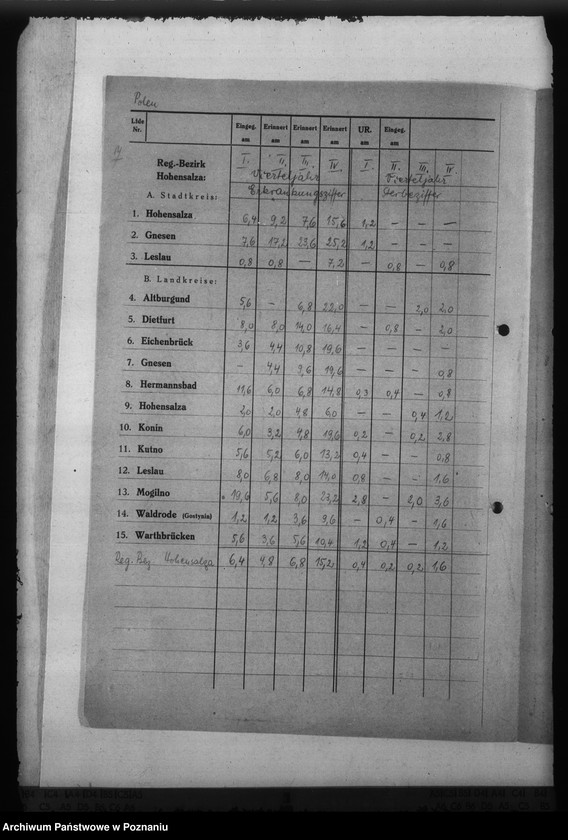 Polen
Lfde Nr. Eingeg. am Erinnert am Erinnert am Erinnert am UR. Eingeg. am
Reg.-Bezirk Hohensalza: I. II. III. IV I. II. III. IV.
Vierteljahr Vierteljahr
A. Stadtkreis: Erkrankungsziffer Sterbeziffer
1. Hohensalza 6,4 9,2 7,6 15,6 1,2 – – –
2. Gnesen 7,6 17,2 23,6 25,2 1,2 – – –
3. Leslau 0,8 0,8 – 7,2 – 0,8 – 0,8
B. Landkreise:
4. Altburgund 5,6 – 6,8 22,0 – – 2,0 2,0
5. Dietfurt 8,0 8,0 14,0 16,4 – 0,8 – 2,0
6. Eichenbrück 3,6 4,4 10,8 19,6 – – – –
7. Gnesen – 4,4 9,6 19,6 – – – 0,8
8. Hermannsbad 11,6 6,0 6,8 14,8 0,3 0,4 – 0,8
9. Hohensalza 2,0 2,0 4,8 6,0 – – 0,4 1,2
10. Konin 6,0 3,2 4,8 19,6 0,2 – 0,2 2,8
11. Kutno 5,6 5,2 6,0 13,2 0,4 – – 0,8
12. Leslau 8,0 6,8 8,0 14,0 0,8 – – 1,6
13. Mogilno 10,6 5,6 8,0 23,2 2,8 – 2,0 3,6
14. Waldrode (Gostynin) 1,2 1,2 3,6 9,6 – 0,4 – 1,6
15. Warthbrücken 5,6 3,6 5,6 10,4 1,2 0,4 – 1,2
Reg. Bez. Hohensalza 6,4 4,8 6,8 15,2 0,4 0,2 0,2 1,6
Archiwum Państwowe w Poznaniu